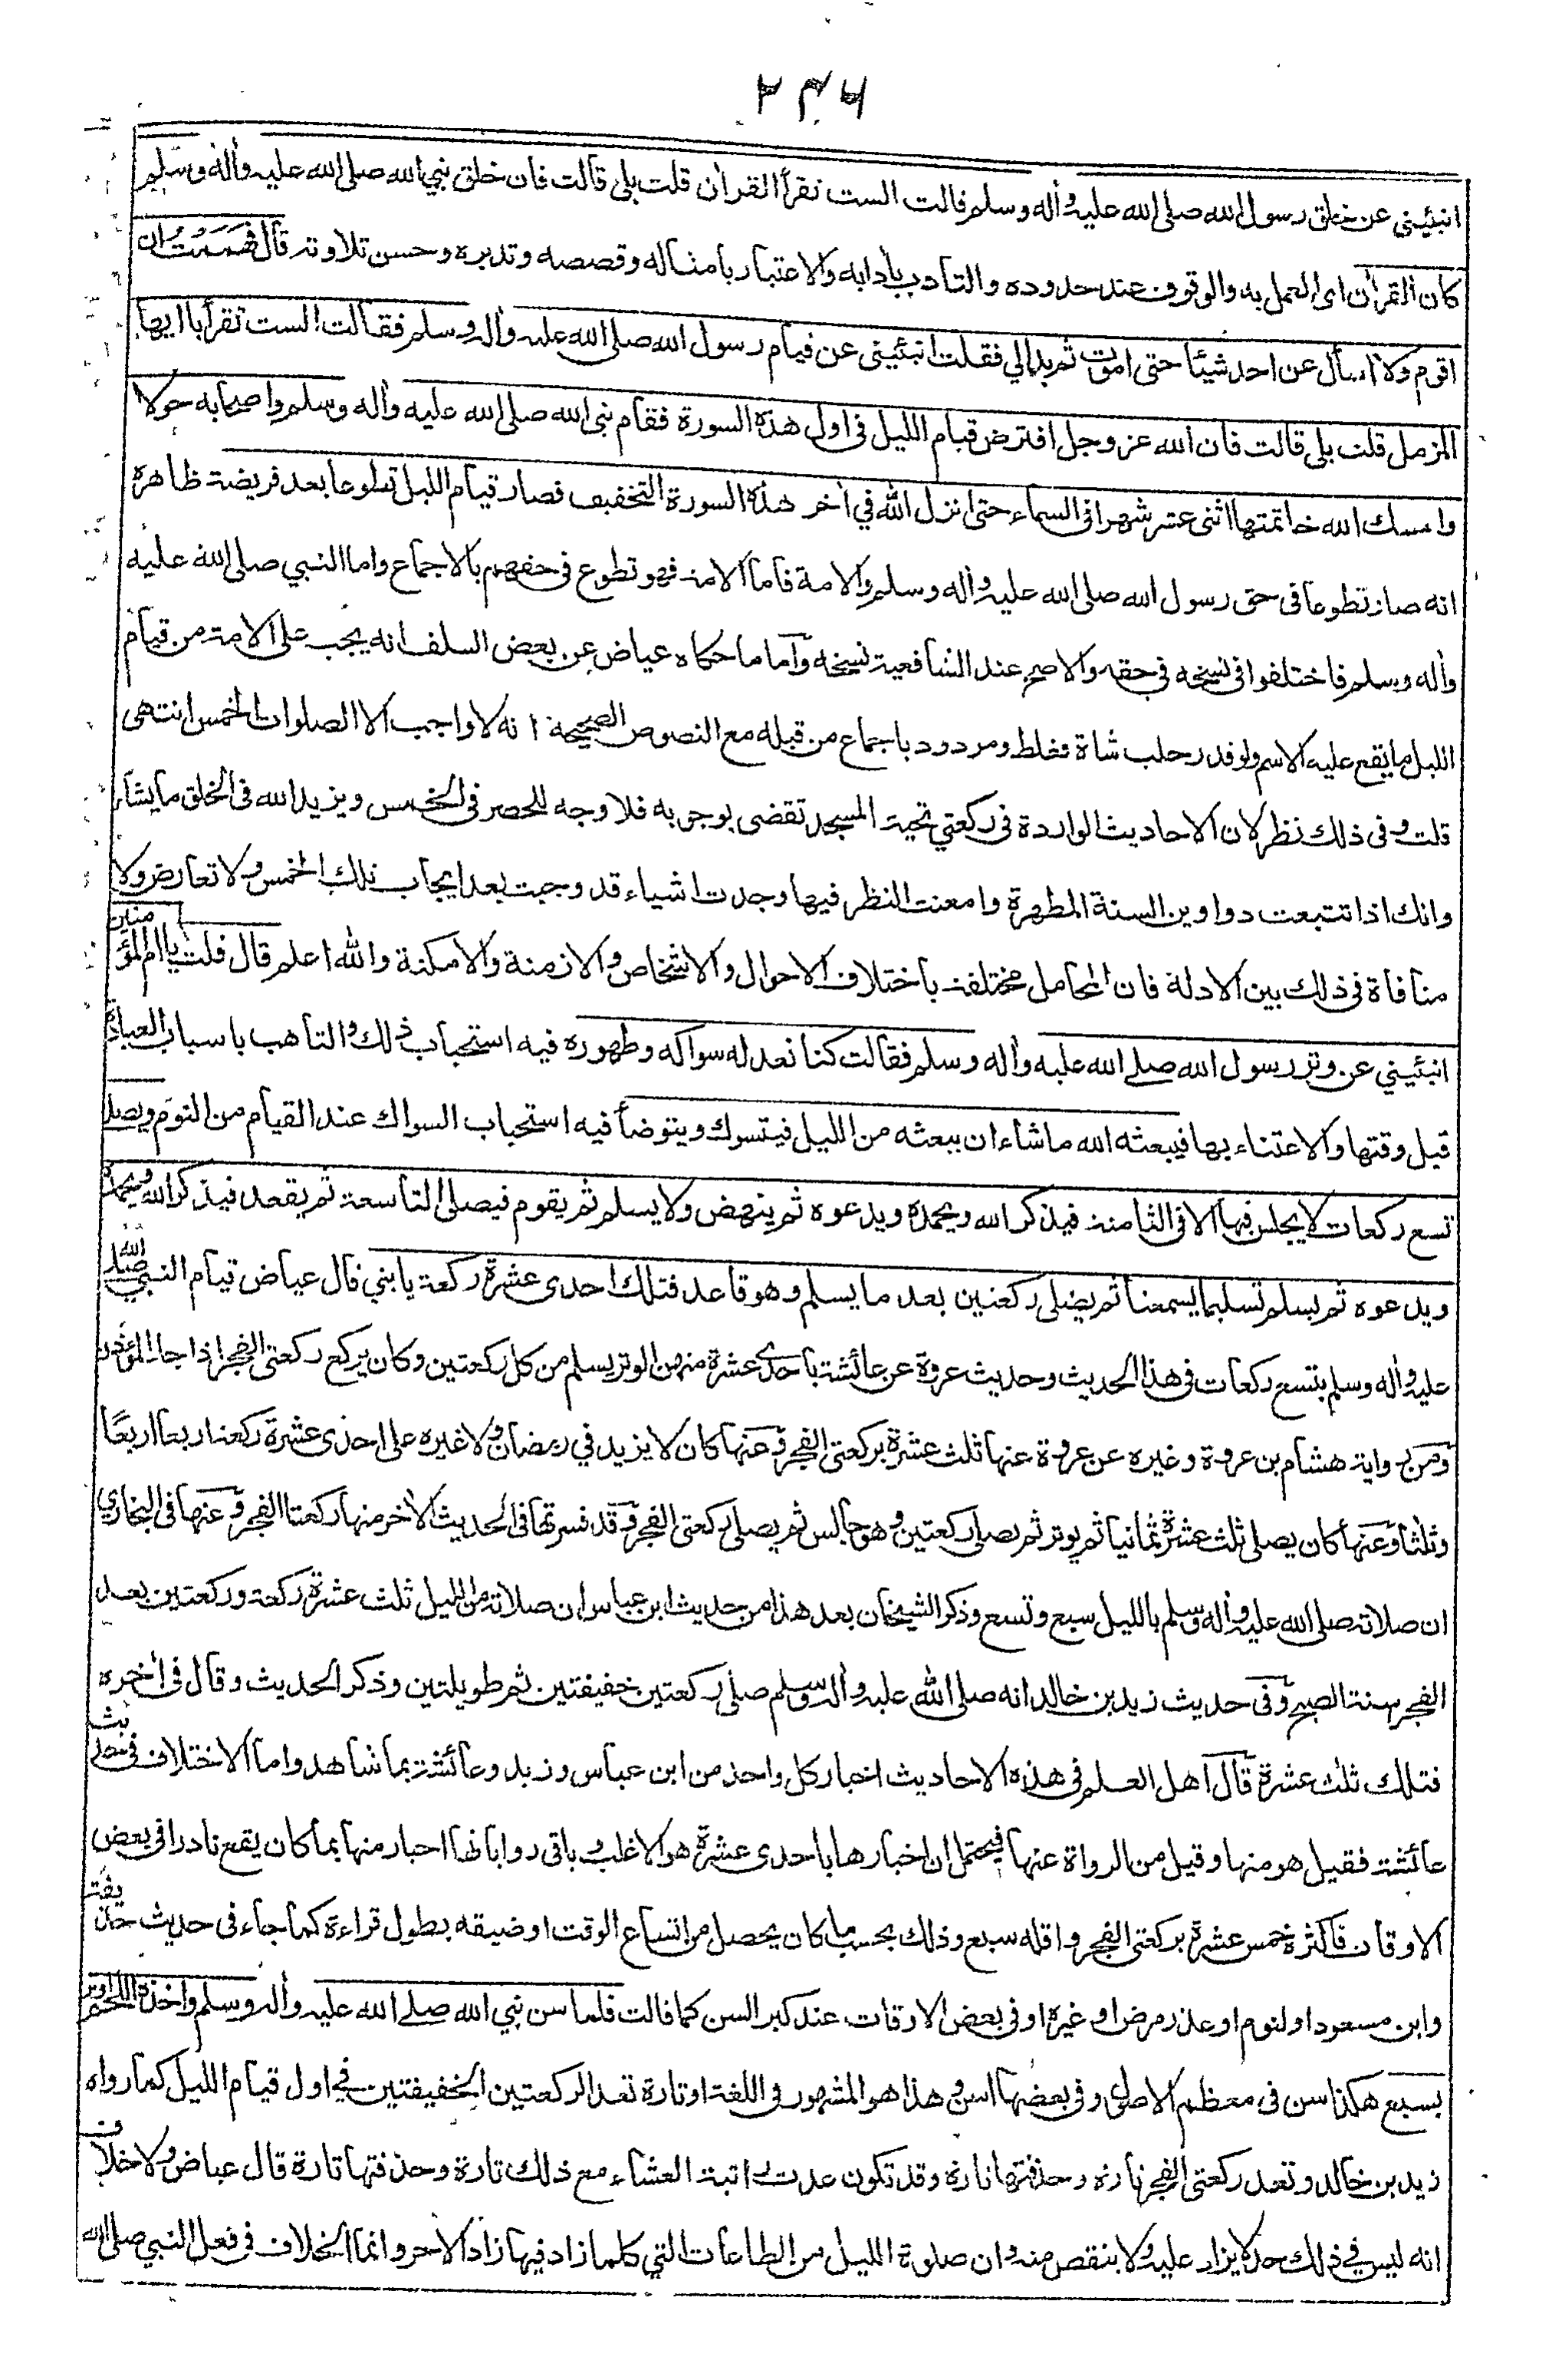 ٢٤٦
انبئيني عن خلق رسول الله صلى الله عليه وأله وسلم قالت الست تقرأ القرأن قلت بلى قالت فان خلق نبي الله صلى الله عليه وأله وسلم
كان القرأن اى العمل به والوقوف عند حدوده والتادب بأدابه والاعتبار بامثاله وقصصه وتدبره وحسن تلاوته قال فهممت ان
اقوم ولا اسأل عن احد شيئا حتى اموت ثم بدا لي فقلت انبئيني عن قيام رسول الله صلى الله عليه وأله وسلم فقالت الست تقرأ يا ايها
المزمل قلت بلى قالت فان الله عز وجل افترض قيام الليل فى اول هذه السورة فقام نبى الله صلى الله عليه وأله وسلم واصحابه حولا
وامسك الله خاتمتها اثنى عشر شهرا فى السماء حتى انزل الله في أخر هذه السورة التخفيف فصار قيام الليل تطوعا بعد فريضة ظاهره
انه صار تطوعا فى حق رسول الله صلى الله عليه وأله وسلم والامة فاما الامة فهو تطوع فى حقهم بالاجماع واما النبي صلى الله عليه
وأله وسلم فاختلفوا فى نسخه في حقه والاصح عند الشافعية نسخه وأما ما حكاه عياض عن بعض السلف انه يجب على الامة من قيام
الليل ما يقع عليه الاسم ولو قدر حلب شاة فغلط ومردود باجماع من قبله مع النصوص الصحيحة انه لا واجب الا الصلوات الخمس انتهى
قلت وفى ذلك نظر لان الاحاديث الواردة فى ركعتي تحية المسجد تقضى بوجوبه فلا وجه للحصر فى الخمس ويزيد الله فى الخلق ما يشاء
وانك اذا تتبعت دواوين السنة المطهرة وامعنت النظر فيها وجدت اشياء قد وجبت بعد ايجاب تلك الخمس ولا تعارض ولا
منافاة فى ذلك بين الادلة فان المحامل مختلفة باختلاف الاحوال والاشخاص والازمنة والامكنة والله اعلم قال قلت يا ام المؤمنين
انبئيني عن وتر رسول الله صلے الله عليه وأله وسلم فقالت كنا نعد له سواكه وطهوره فيه استحباب ذلك والتاهب باسباب العبادة
قبل وقتها والاعتناء بها فيبعثه الله ما شاء ان يبعثه من الليل فيتسوك ويتوضأ فيه استحباب السواك عند القيام من النوم ويصلى
تسع ركعات لا يجلس فيها الا فى الثامنة فيذكر الله ويحمده ويدعوه ثم ينهض ولا يسلم ثم يقوم فيصلى التاسعة ثم يقعد فيذكر الله ويحمده
ويدعوه ثم يسلم تسليما يسمعنا ثم يصلى ركعتين بعد ما يسلم وهو قاعد فتلك احدى عشرة ركعة يا بني قال عياض قيام النبي صلى الله
عليه وأله وسلم بتسع ركعات فى هذا الحديث وحديث عروة عن عائشة باحدى عشرة منهن الوتر يسلم من كل ركعتين وكان يركع ركعتى الفجر اذا جاء المؤذن
ومن رواية هشام بن عروة وغيره عن عروة عنها ثلث عشرة بركعتى الفجر وعنها كان لا يزيد في رمضان ولا غيره على احدى عشرة ركعة اربعا اربعًا
وثلثا وعنها كان يصلى ثلث عشرة ثمانيا ثم يوتر ثم يصلى ركعتين وهو جالس ثم يصلى ركعتى الفجر وقد فسرتها فى الحديث الأخر منها ركعتا الفجر وعنها فى البخاري
ان صلاته صلى الله عليه وأله وسلم بالليل سبع وتسع وذكر الشيخان بعد هذا من حديث ابن عباس ان صلاته من الليل ثلث عشرة ركعة وركعتين بعد
الفجر سنة الصبح وفى حديث زيد بن خالد انه صلى الله عليه وأله وسلم صلى ركعتين خفيفتين ثم طويلتين وذكر الحديث وقال فى أخره
فتلك ثلث عشرة قال اهل العلم فى هذه الاحاديث اخبار كل واحد من ابن عباس وزيد وعائشة بما شاهد واما الاختلاف فى حديث
عائشة فقيل هو منها وقيل من الرواة عنها فيحتمل ان اخبارها باحدى عشرة هو الاغلب وباقى رواياتها اخبار منها بما كان يقع نادرا فى بعض
الاوقات فاكثره خمس عشرة بركعتى الفجر واقله سبع وذلك بحسب ما كان يحصل من اتساع الوقت او ضيقه بطول قراءة كما جاء فى حديث حذيفة
وابن مسعود او لنوم او عذر مرض او غيره او فى بعض الاوقات عند كبر السن كما قالت فلما سن نبي الله صلے الله عليه وأله وسلم واخذه اللحم اوتر
بسبع هكذا سن فى معظم الاصول وفى بعضها اسن وهذا هو المشهور فى اللغة او تارة تعد الركعتين الخفيفتين في اول قيام الليل كما رواه
زيد بن خالد وتعد ركعتى الفجر تارة وحذفتها تارة وقد تكون عدت راتبة العشاء مع ذلك تارة وحذفتها تارة قال عياض ولا خلاف
انه ليس في ذلك حد لا يزاد عليه ولا ينقص منه وان صلوة الليل من الطاعات التي كلما زاد فيها زاد الاجر وانما الخلاف فى فعل النبي صلى الله